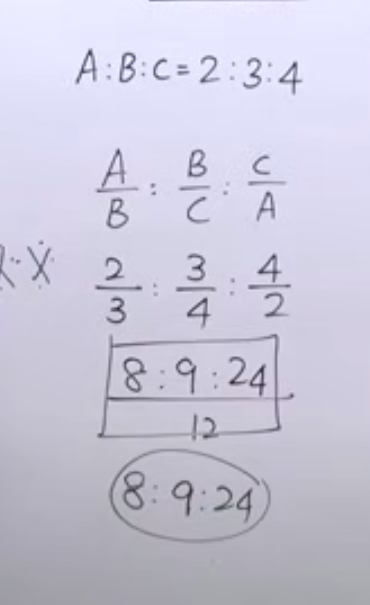 A:B:C=2:3:4
A/B : B/C : C/A
2/3 : 3/4 : 4/2
8:9:24
12
8:9:24